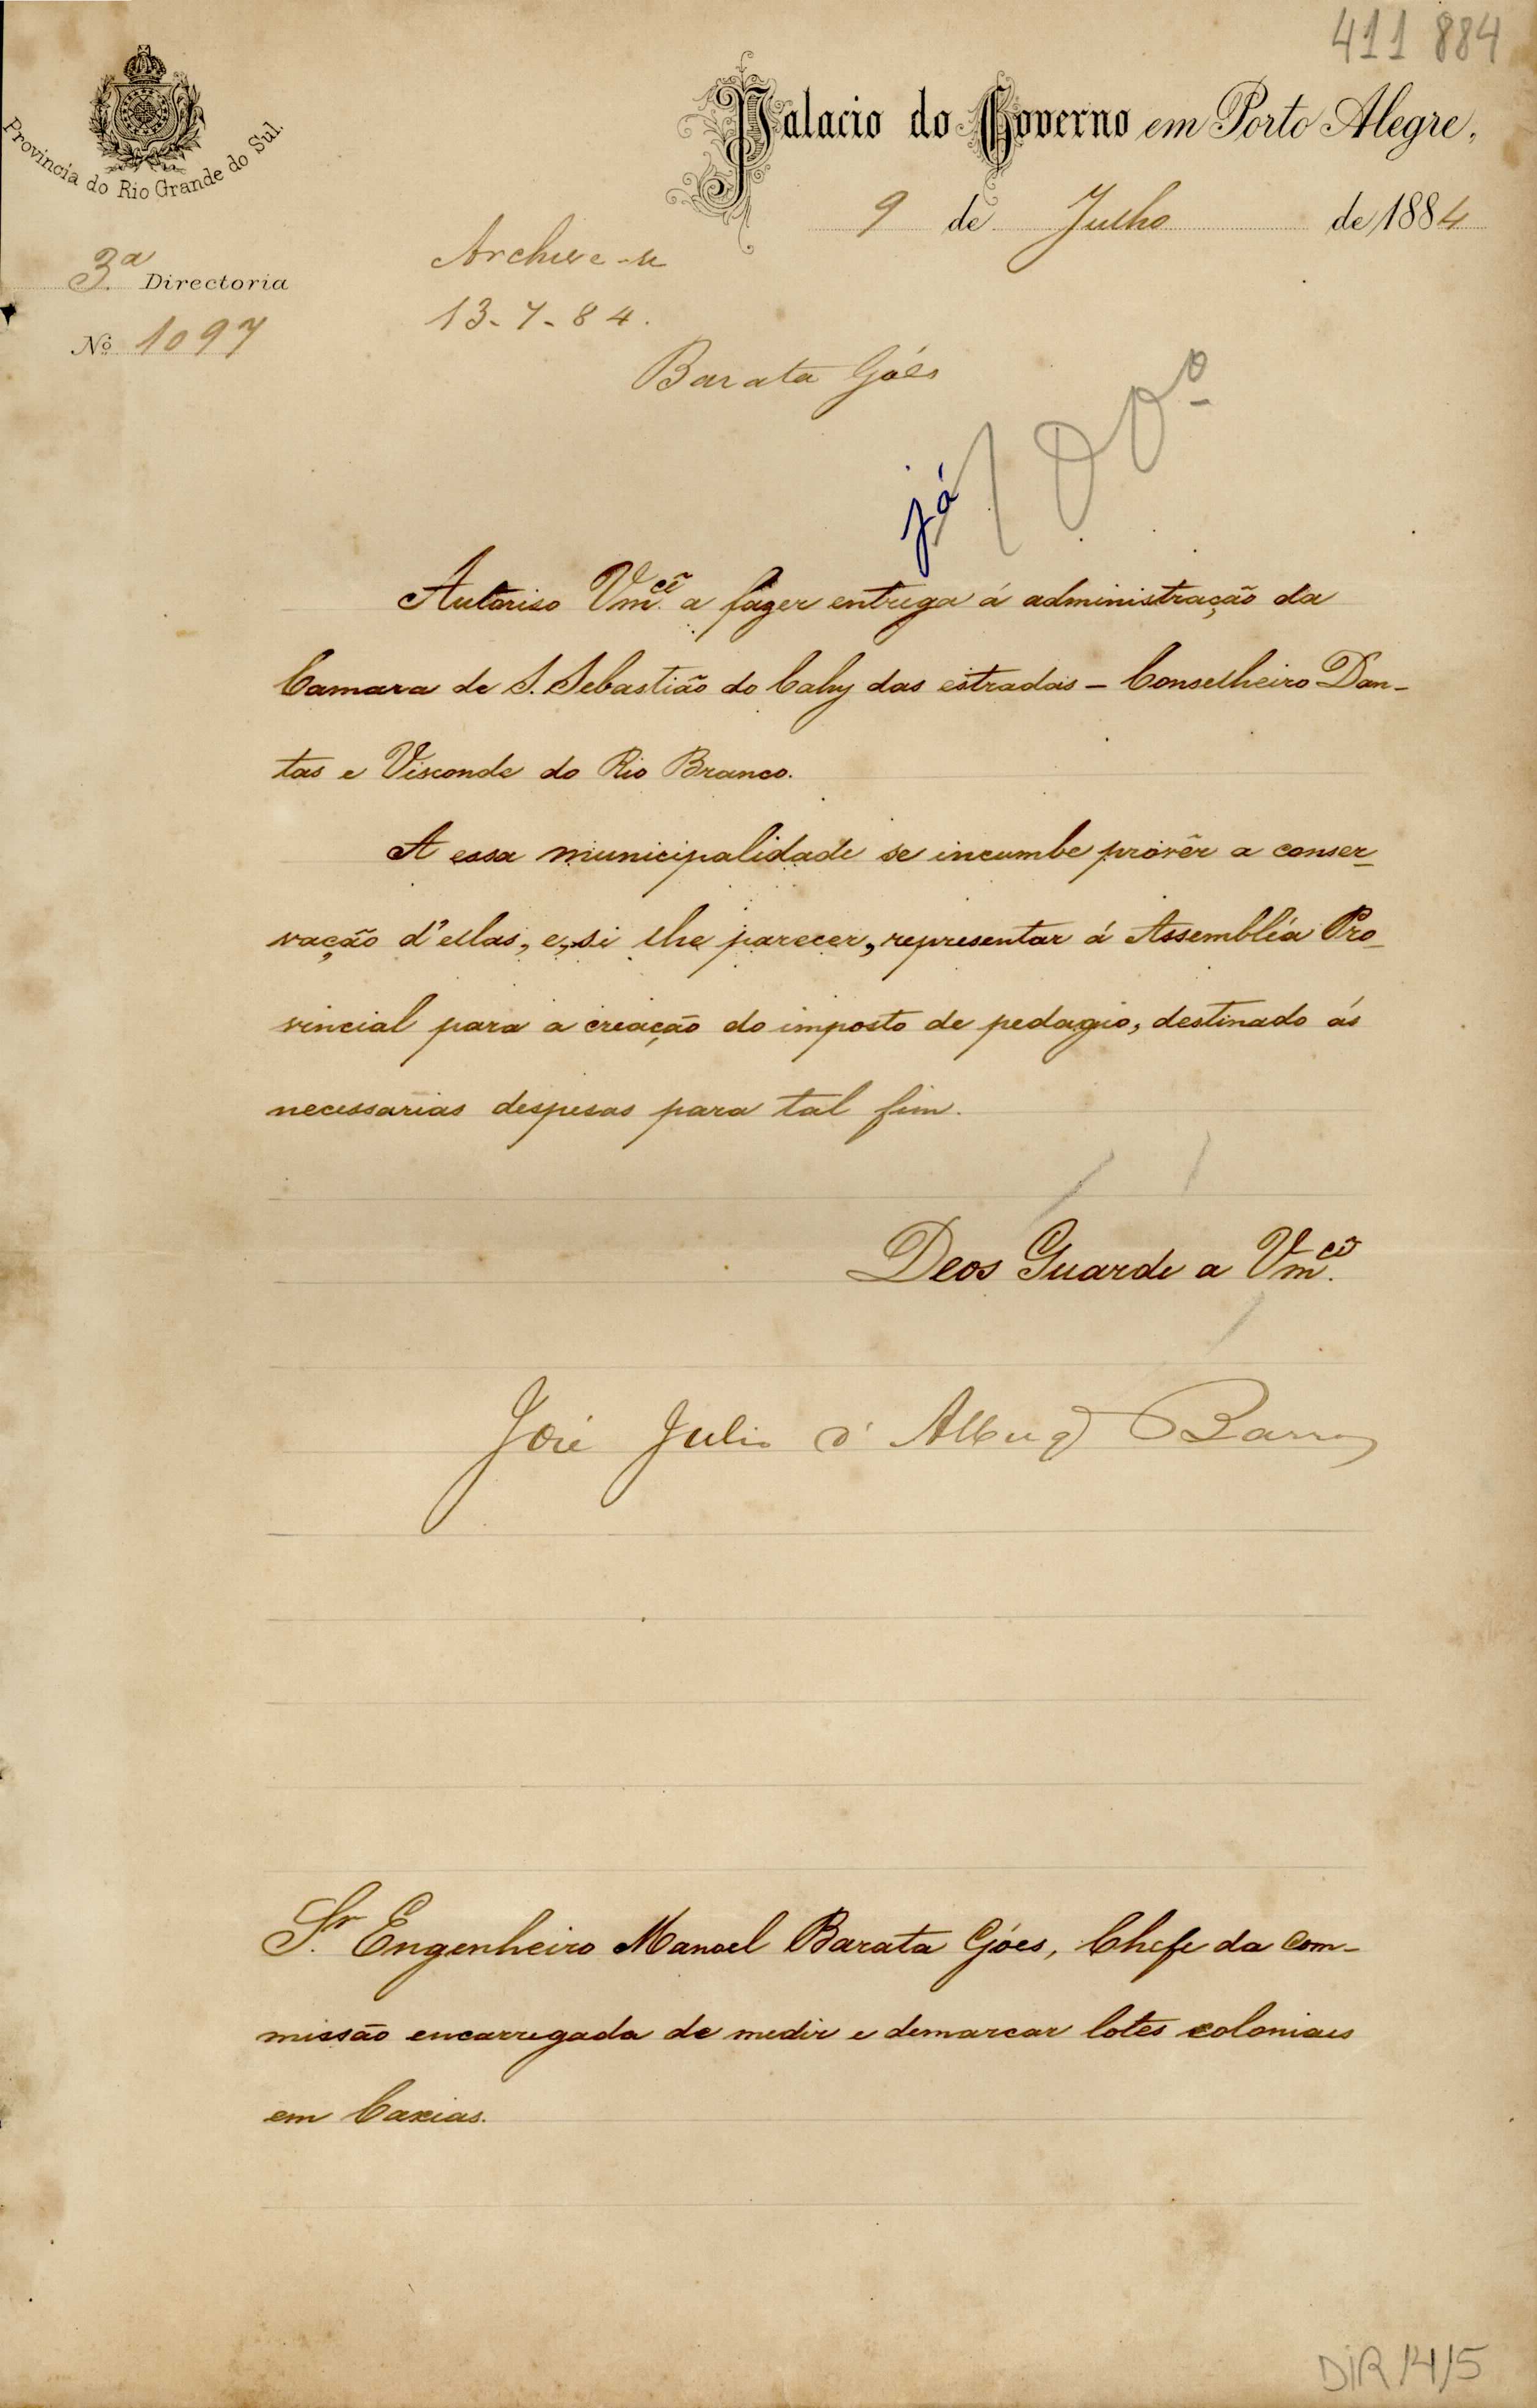 411 884
Palacio do Governo em Porto Alegre,
Provincia do Rio Grande do Sul.
9 de Julho de 1884
3ª Directoria
Nº 1097
Archive-se
13-7-84.
Barata Góes
já
Autoriso Vm.cê a fazer entrega á administração da
Camara de S. Sebastião do Cahy das estradas – Conselheiro Dan-
tas e Visconde do Rio Branco.
A essa municipalidade se incumbe provêr a conser-
vação d'ellas, e, si lhe parecer, representar á Assembléa Pro-
vincial para a creação do imposto de pedagio, destinado ás
necessarias despesas para tal fim.
Deos Guarde a Vm.cê
José Julio d'Albuq Barros
Sr. Engenheiro Manoel Barata Góes, Chefe da com-
missão encarregada de medir e demarcar lotes coloniaes
em Caxias.
DIR 14/5